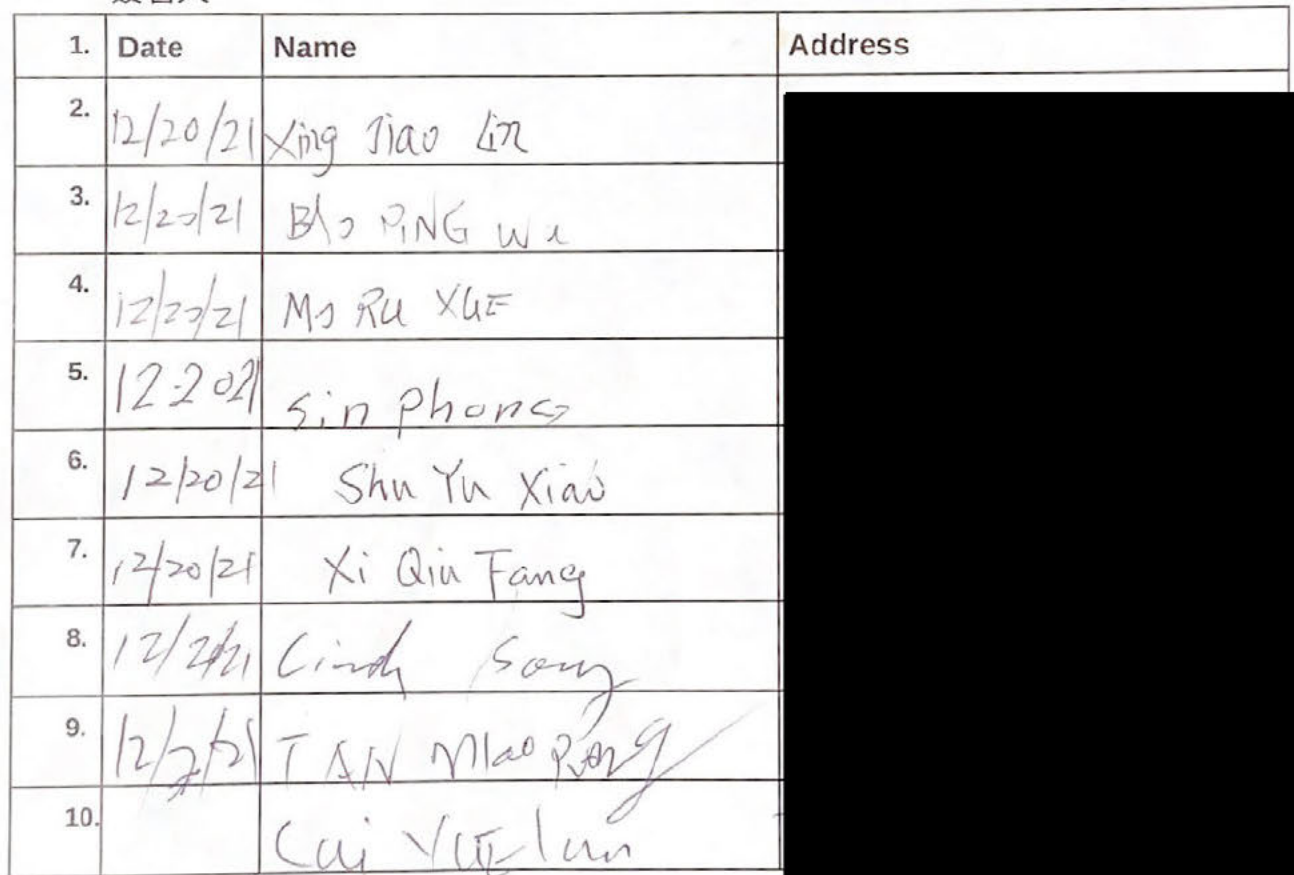 1. Date Name Address
2. 12/20/21 Xing Jiao Lin
3. 12/20/21 BAO PiNG Wu
4. 12/20/21 Mo RU XUE
5. 12-2021 Sin Phong
6. 12/20/21 Shu Yu Xiao
7. 12/20/21 Xi Qiu Fang
8. Cindy Song
9. TAN Miao
10. Cai YUE lun